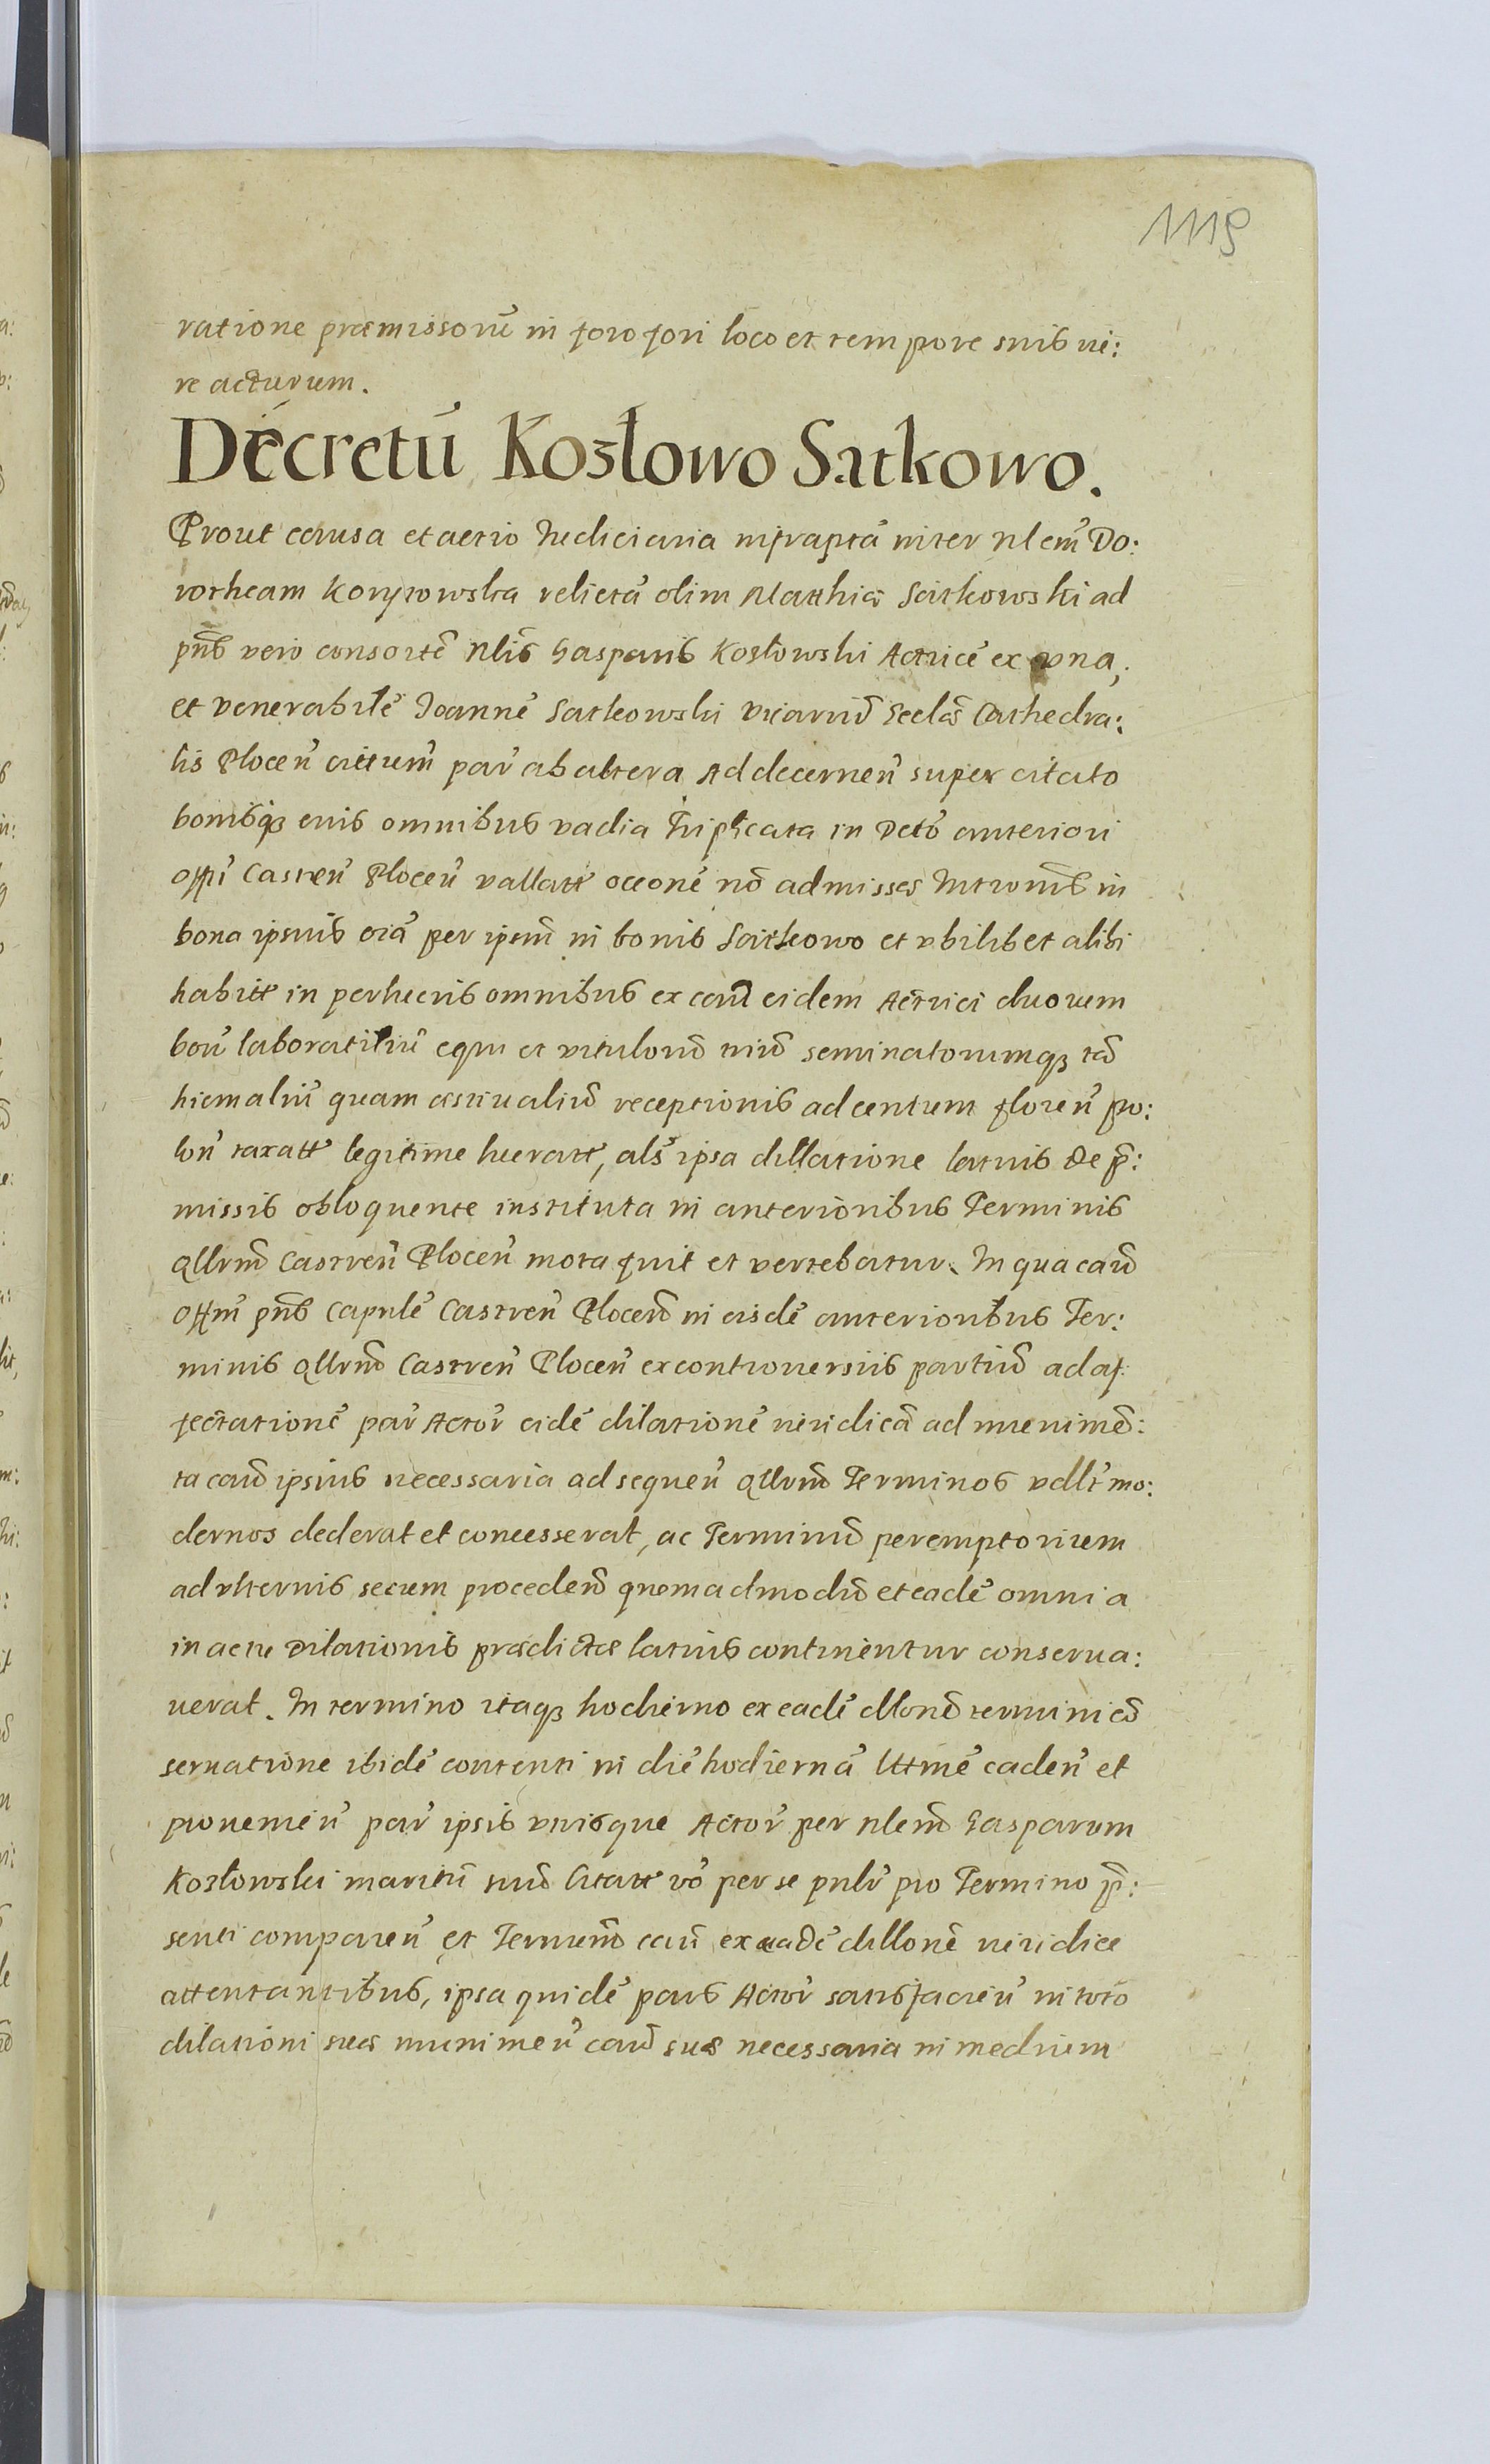 1119
ratione præmissorū in foro fori loco et tempore suis iu:
re acturum.
Decretū Kozłowo Satkowo.
Prout causa et actio Iudiciaria infraptā inter Nlem̄ Do:
rotheam relictā olim Matthiæ Satkowski ad
pn̄s vero consortē Nlis Gasparis Kozłowski Actricē ex vna,
et venerabilē Joannē Satkowski vicariū Ecclæ Cathedra:
lis Plocen̄ citum̄ par̄ ab altera Ad decernen̄ super citato
bonisq̄ꝫ eius omnibus vadia Triplicata in Dcto anteriori
Offī Castren̄ Plocen̄ vallatt occōne nō admissæ Intromis̄ in
bona ipsius ōia per ipsum̄ in bonis Satkowo et vbilibet alibi
habitt in perlucris omnibus ex cau͞ eidem Actrici duorum
boū laboratiliū equi et vitulorū triū seminatorumqꝫ tā
hiemaliū quam æstiualiū receptionis ad centum floren̄ po:
lon̄ taxatt legitime lucratt, als̄ ipsa dillatione latius de p̄:
missis obloquente instituta in anterioribus Terminis
Qllrum̄ Castren̄ Plocen̄ mota fuit et vertebatur. In qua cau͞
Offm̄ pn̄s Capnlē Castren̄ Plocen̄ in eisdē anterioribus Ter:
minis Qllrum̄ Castren̄ Plocen̄ ex controuersiis partiū ad af:
fectationē par̄ Actor̄ eidē dilationē iuridicā ad munimē:
ta cau͞ ipsius necessaria ad sequen̄ Qllrum̄ Terminos vdlt̄ mo:
dernos dederat et concesserat, ac Terminū peremptorium
ad vlterius secum proceden̄ quemadmodū et eadē omnia
in actu Dilationis prædictæ latius continentur conserua:
uerat. In termino itaqꝫ hodierno ex eadē dllonē termini cō
seruatione ibidē contenti in diē hodiernā lttmē caden̄ et
prouenien̄ par̄ ipsis vtrisque Actor̄ per Nlem̄ Gasparum
Kozłowski maritū suū Citatt vō per se pnlr̄ pro Termino p̄:
senti comparen̄ et Terminū cau͞ ex eadē dillonē iuridice
attentantibus, ipsa quidē pars Actor̄ satisfacien̄ in toto
dilationi suæ munimen̄ cau͞ suæ necessaria in medium